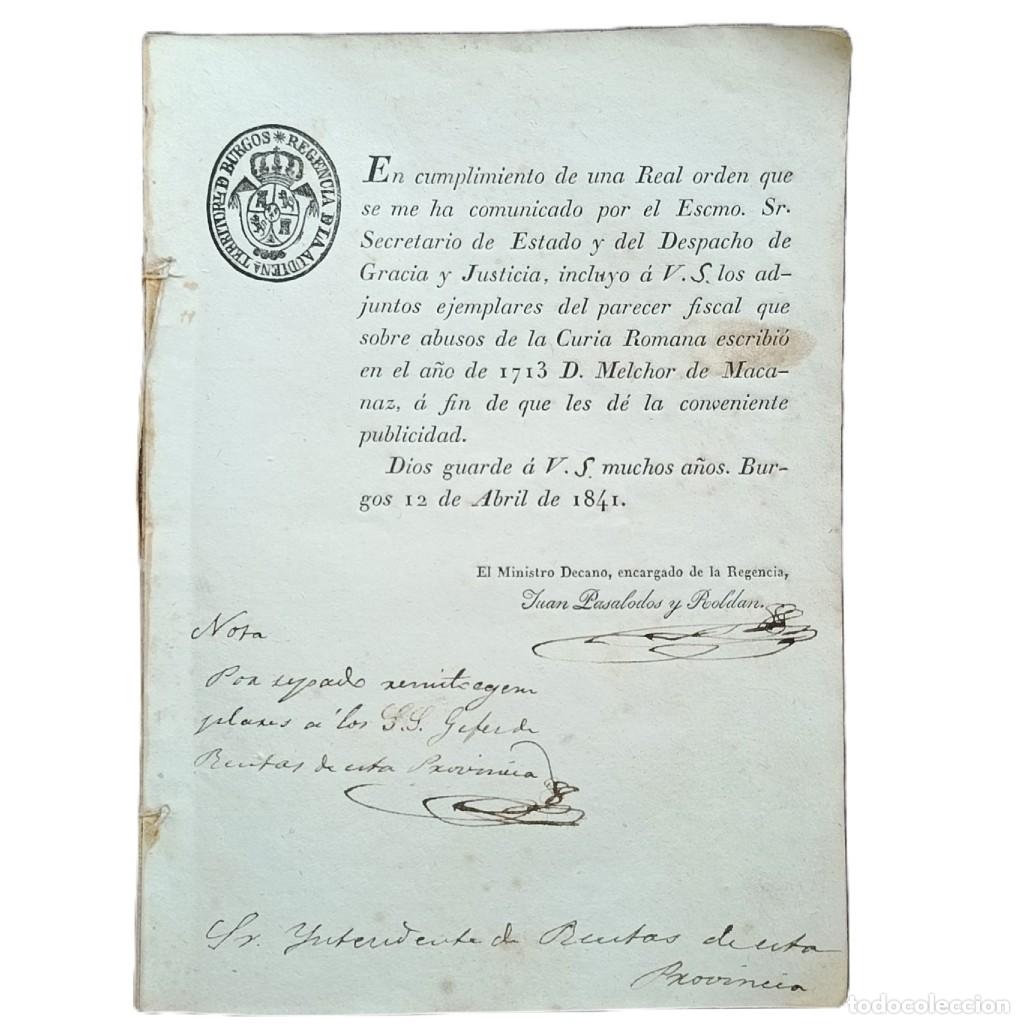 REGENCIA D LA AUDIENᵃ TERRITORˡ D BURGOS
En cumplimiento de una Real orden que
se me ha comunicado por el Escmo. Sr.
Secretario de Estado y del Despacho de
Gracia y Justicia, incluyo á V. S. los ad-
juntos ejemplares del parecer fiscal que
sobre abusos de la Curia Romana escribió
en el año de 1713 D. Melchor de Maca-
naz, á fin de que les dé la conveniente
publicidad.
Dios guarde á V. S. muchos años. Bur-
gos 12 de Abril de 1841.
El Ministro Decano, encargado de la Regencia,
Juan Pasalodos y Roldan.
Nota
Por sepado remito egem
plares a los S.S. Gefes de
Rentas de esta Provincia
Sr. Yntendente de Rentas de esta
Provincia
todocoleccion